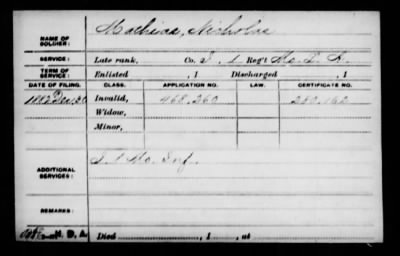 NAME OF SOLDIER: Mathias, Nicholas
SERVICE: Late rank, Co. I, 1 Reg't Mo. L. A.
TERM OF SERVICE: Enlisted , 1 Discharged , 1
DATE OF FILING. CLASS. APPLICATION NO. LAW. CERTIFICATE NO.
1882 Dec 20 Invalid, 468.260 280.162
Widow,
Minor,
ADDITIONAL SERVICES: I 1 Mo. Inf.
REMARKS:
H. D. A.
Died , 1 , at